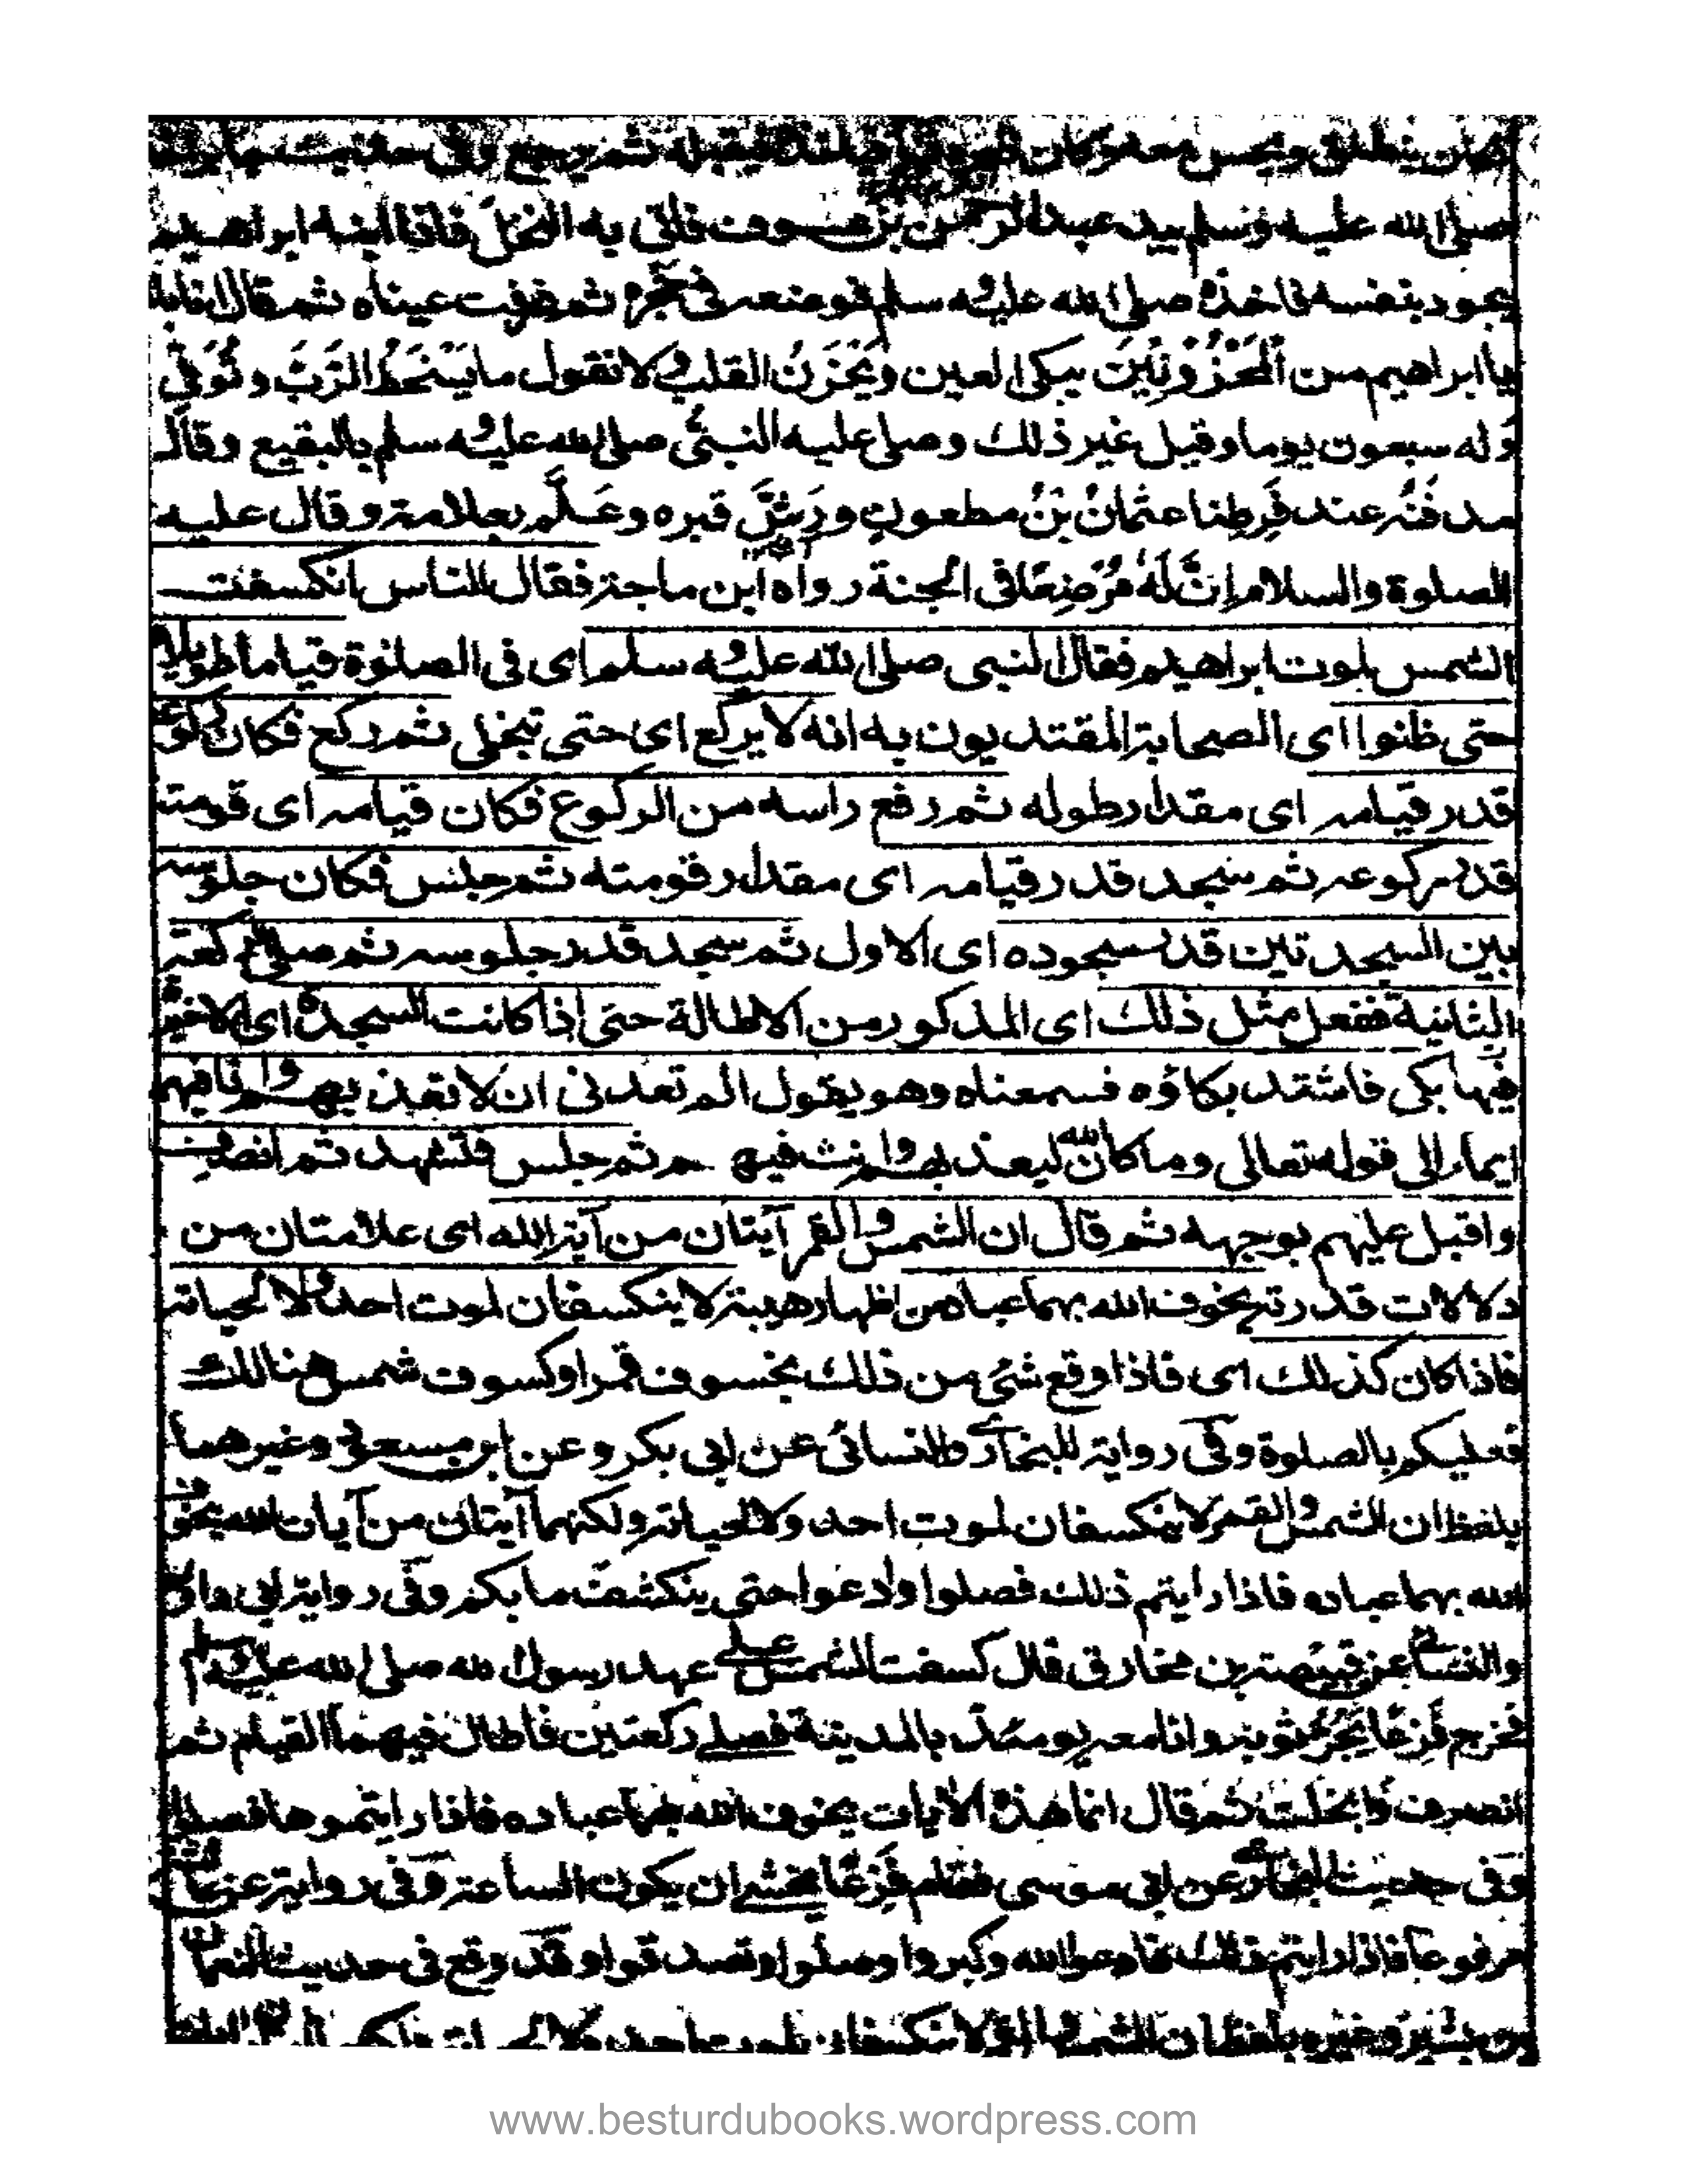 ينطلق ونحن معه وكان فيقبله ثم يرجع وفى حديث جابر
صلى الله عليه وسلم بيد عبدالرحمن بن عوف فاتى به النخل فاذا ابنه ابراهيم
يجود بنفسه فاخذه صلى الله عليه وسلم فوضعه فى حجره ثم ذرفت عيناه ثم قال انابك
يا ابراهيم من المَحْزُوْنِيْنَ يبكى العين ويَحْزَنُ القلب ولا نقول ما يُسْخِطُ الرَّبَّ وتُوُفِّى
وله سبعون يوما وقيل غير ذلك وصلى عليه النبىّ صلى الله عليه وسلم بالبقيع وقال
ندفنه عند فَرَطِنا عثمانَ بْنَ مظعون ورَشَّ قبره وعَلَّم بعلامة وقال عليه
الصلوة والسلام اِنَّ لَهٗ مُرْضِعًا فى الجنة رواه ابن ماجة فقال الناس انكسفت
الشمس لموت ابراهيم فقال النبى صلى الله عليه وسلم اى فى الصلوة قياما طويلا
حتى ظنوا اى الصحابة المقتديون به انه لا يركع اى حتى تنجلى ثم ركع فكان ركوعه
قدر قيامه اى مقدار طوله ثم رفع راسه من الركوع فكان قيامه اى قومته
قدر ركوعه ثم سجد قدر قيامه اى مقدار قومته ثم جلس فكان جلوسه
بين السجدتين قدر سجوده اى الاول ثم سجد قدر جلوسه ثم صلى الركعة
الثانية ففعل مثل ذلك اى المذكور من الاطالة حتى اذا كانت السجدة اى الاخيرة
فيها بكى فاشتد بكاؤه فسمعناه وهو يقول الم تعدنى ان لا تعذبهم وانا فيهم
ايماء الى قوله تعالى وما كان الله ليعذبهم وانت فيهم ثم جلس فتشهد ثم انصرف
واقبل عليهم بوجهه ثم قال ان الشمس والقمر آيتان من آية الله اى علامتان من
دلالات قدرته يخوف الله بهما عباده من اظهار هيبته لا ينكسفان لموت احد ولا لحياته
فاذا كان كذلك اى فاذا وقع شئ من ذلك بخسوف قمر او كسوف شمس هنالك
فعليكم بالصلوة وفى رواية للبخارى والنسائى عن ابى بكر وعن ابن مسعود وغيرهما
بلفظ ان الشمس والقمر لا ينكسفان لموت احد ولا لحياته ولكنهما آيتان من آيات الله يخوف
الله بهما عباده فاذا رايتم ذلك فصلوا وادعوا حتى ينكشف ما بكم وفى رواية ابى داود
والنسائى عن قبيصة بن مخارق قال كسفت الشمس على عهد رسول الله صلى الله عليه وسلم
فخرج فَزِعًا يَجُرُّ ثوبه وانا معه يومئذ بالمدينة فصلى ركعتين فاطال فيهما القيام ثم
انصرف وانجلت ثم قال انما هذه الآيات يخوف الله بها عباده فاذا رايتموها فصلوا
وفى حديث البخارى عن ابى موسى فقام فَزِعًا يخشى ان يكون الساعة وفى رواية عن عائشة
مرفوعا فاذا رايتم ذلك فادعوا الله وكبروا وصلوا وتصدقوا وقد وقع فى حديث النعمان
بن بشير وغيره بلفظ ان الشمس والقمر لا ينكسفان لموت احد ولا لحياته
www.besturdubooks.wordpress.com